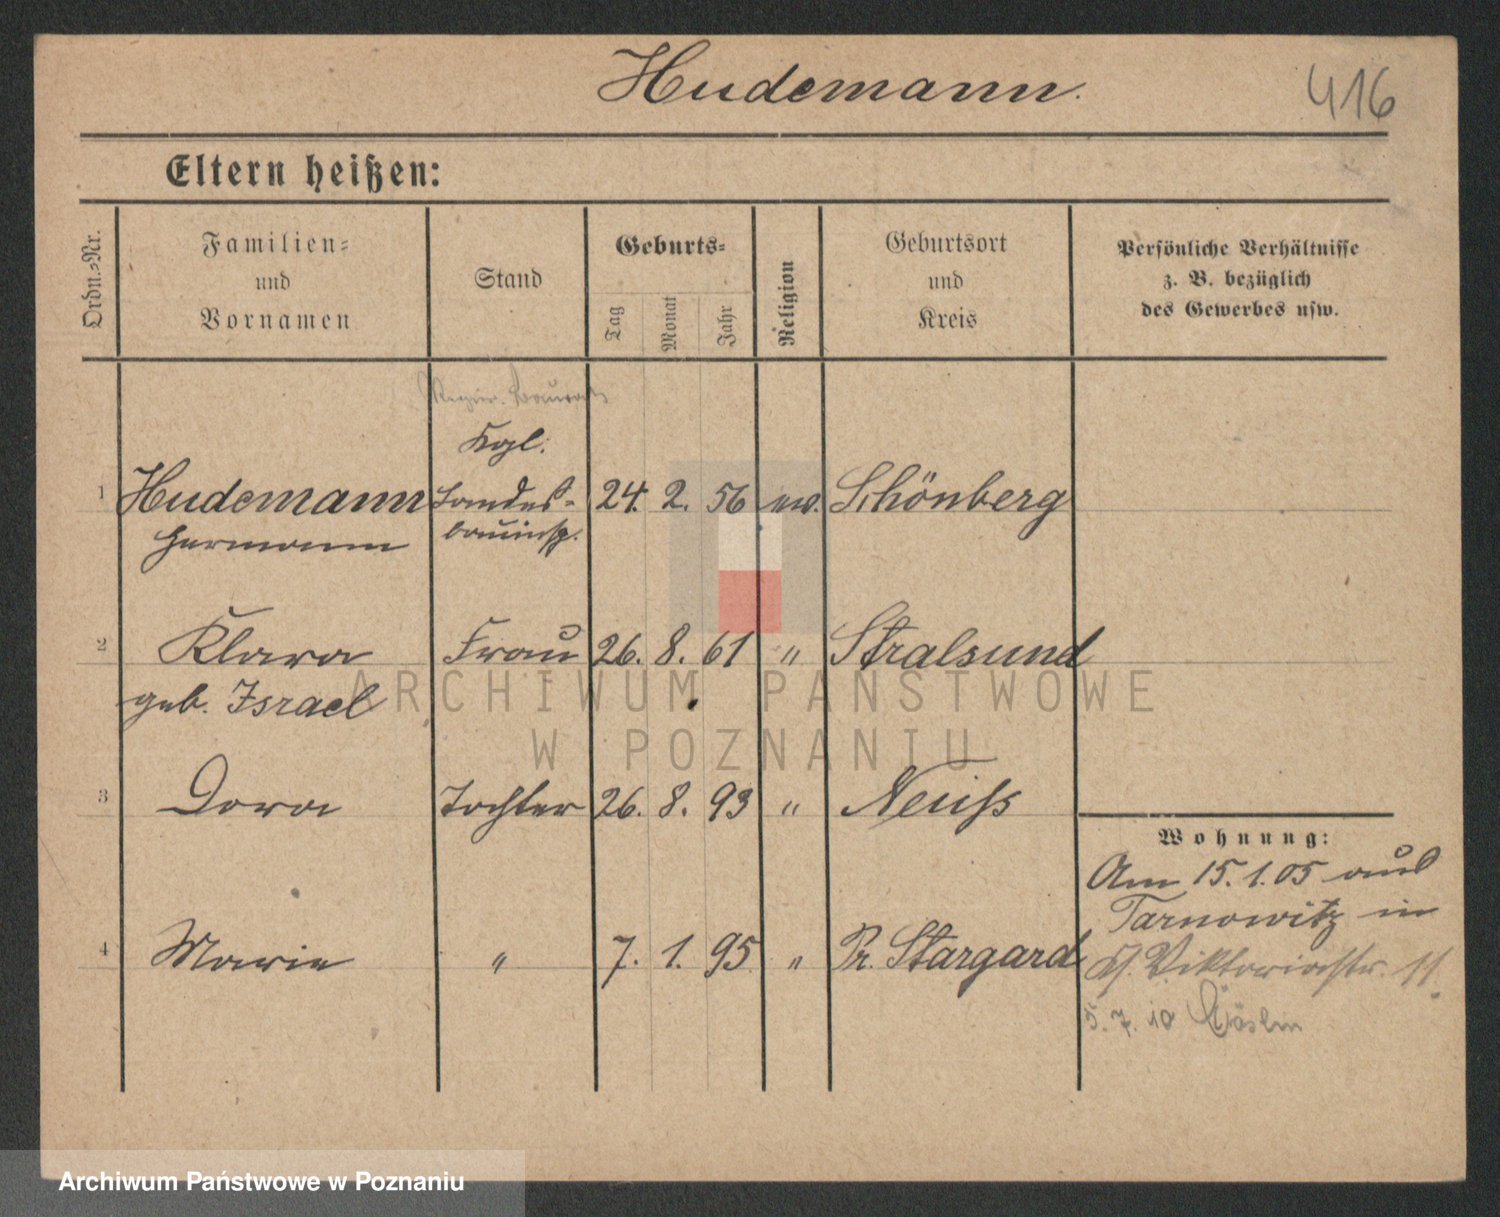 Hudemann.
416
Eltern heißen:
Ordn.=Nr.
Familien=
und
Vornamen
Stand
Geburts=
Tag
Monat
Jahr
Religion
Geburtsort
und
Kreis
Persönliche Verhältnisse
z. B. bezüglich
des Gewerbes usw.
Kgl.
1 Hudemann Landes- 24. 2. 56 ev. Schönberg
Hermann bauinsp.
2 Klara Frau 26. 8. 61 " Stralsund
geb. Israel
3 Dora Tochter 26. 8. 93 " Neuss
4 Marie " 7. 1. 95 " Pr. Stargard
Wohnung:
Am 15.1.05 aus
Tarnowitz in
Viktoriastr. 11.
5. 7. 10 Cöslin
ARCHIWUM PAŃSTWOWE
W POZNANIU
Archiwum Państwowe w Poznaniu